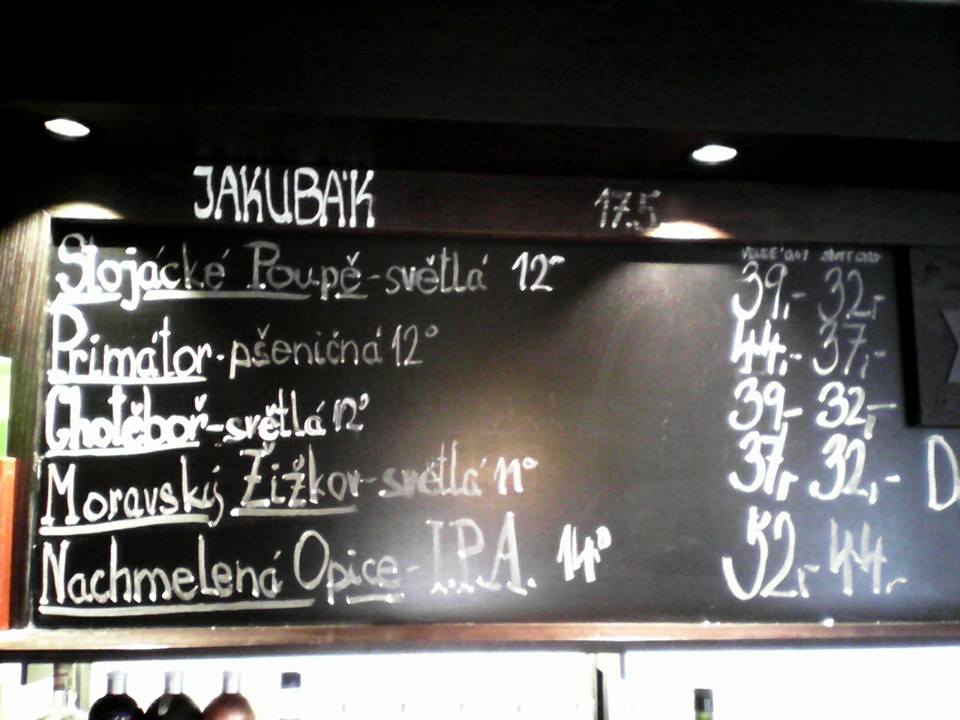 JAKUBÁK 17.5.
Slojácké Poupě-světlá 12° 39,- 32,-
Primátor-pšeničná 12° 44,- 37,-
Chotěboř-světlá 12° 39,- 32,-
Moravský Žižkov-světlá 11° 37,- 32,-
D
Nachmelená Opice-I.P.A. 14° 52,- 44,-